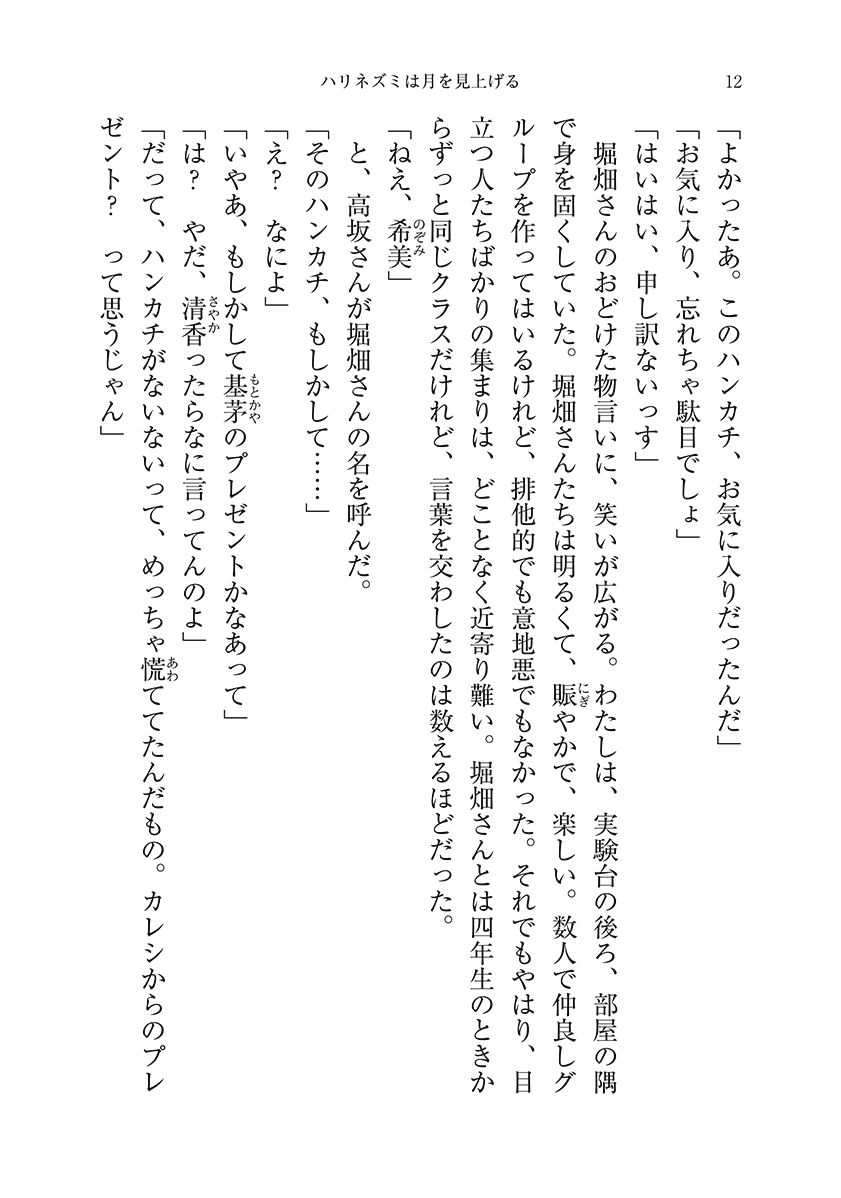 ハリネズミは月を見上げる
12
「よかったあ。このハンカチ、お気に入りだったんだ」
「お気に入り、忘れちゃ駄目でしょ」
「はいはい、申し訳ないっす」
堀畑さんのおどけた物言いに、笑いが広がる。わたしは、実験台の後ろ、部屋の隅
で身を固くしていた。堀畑さんたちは明るくて、賑やかで、楽しい。数人で仲良しグ
にぎ
ループを作ってはいるけれど、排他的でも意地悪でもなかった。それでもやはり、目
立つ人たちばかりの集まりは、どことなく近寄り難い。堀畑さんとは四年生のときか
らずっと同じクラスだけれど、言葉を交わしたのは数えるほどだった。
「ねえ、希美」
のぞみ
と、高坂さんが堀畑さんの名を呼んだ。
「そのハンカチ、もしかして……」
「え?　なによ」
「いやあ、もしかして基茅のプレゼントかなあって」
もとかや
「は?　やだ、清香ったらなに言ってんのよ」
さやか
「だって、ハンカチがないないって、めっちゃ慌ててたんだもの。カレシからのプレ
あわ
ゼント?　って思うじゃん」